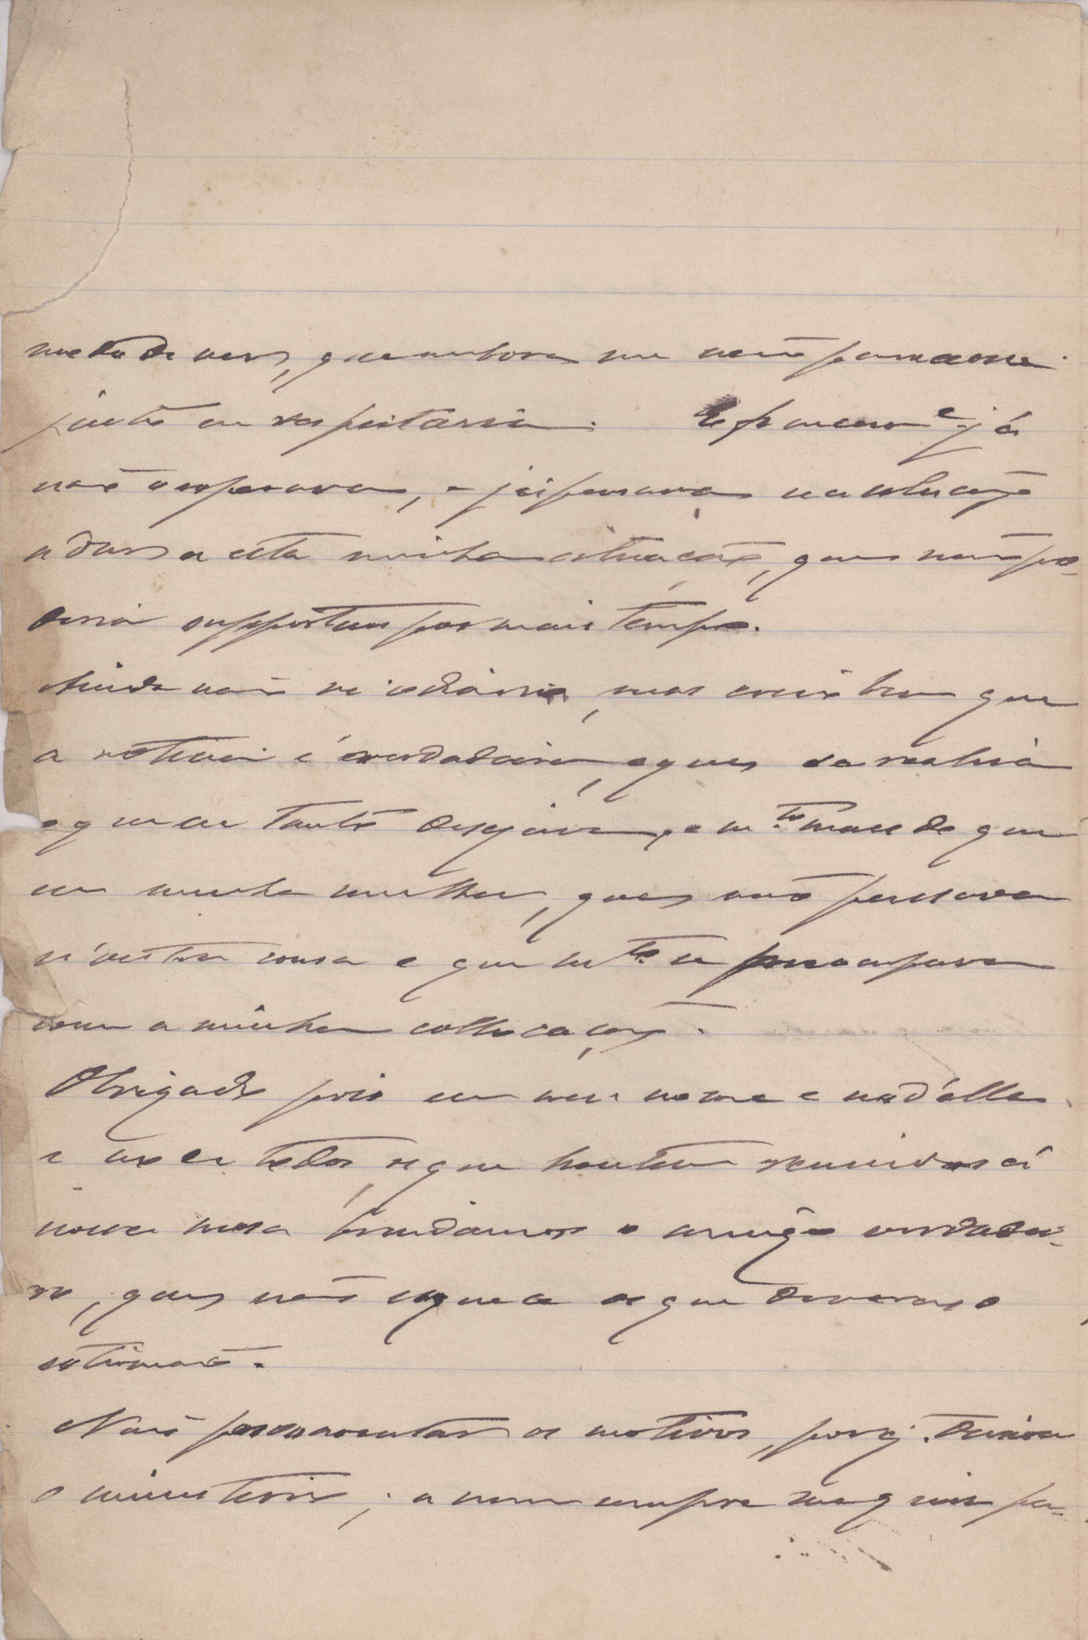 que embora me não parecesse
justo eu respeitaria. já
não esperava, e já pensava na solução
a dar a esta minha situação, que não po-
deria supportar por mais tempo.
Ainda não vi o diario, mas creio bem que
a noticia é verdadeira, e que se realisa
o que eu tanto desejava, e m.to mais do que
eu minha mulher, que não pensava
n'outra cousa e que m.to se preocupava
com a minha collocação.
Obrigado pois em meu nome e no d'ella
e no de todos, que hontem reunidos á
nossa mesa brindámos o amigo verdadei-
ro, que não esquece os que deveras o
estimam.
Não posso os motivos, porq. deixou
o ministerio; a mim sempre me quiz pa-